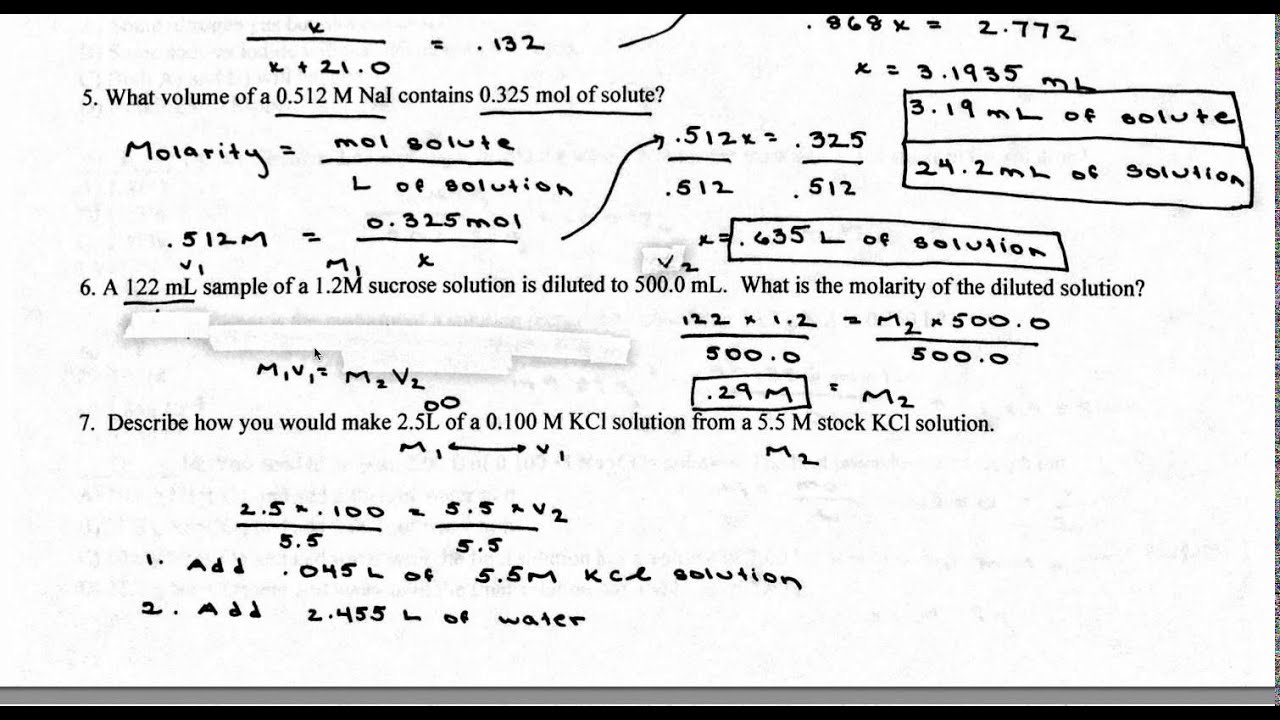 x / x + 21.0 = .132
.868x = 2.772
x = 3.1935 mL
3.19 mL of solute
24.2 mL of solution
5. What volume of a 0.512 M NaI contains 0.325 mol of solute?
Molarity = mol solute / L of solution
.512x = .325
.512 .512
.512M = 0.325 mol / x
x = .635 L of solution
V1 M1 V2
6. A 122 mL sample of a 1.2M sucrose solution is diluted to 500.0 mL. What is the molarity of the diluted solution?
122 x 1.2 = M2 x 500.0
500.0 500.0
M1V1 = M2V2
.29 M = M2
00
7. Describe how you would make 2.5L of a 0.100 M KCl solution from a 5.5 M stock KCl solution.
M1 V1 M2
2.5 x .100 = 5.5 x V2
5.5 5.5
1. Add .045 L of 5.5M KCl solution
2. Add 2.455 L of water